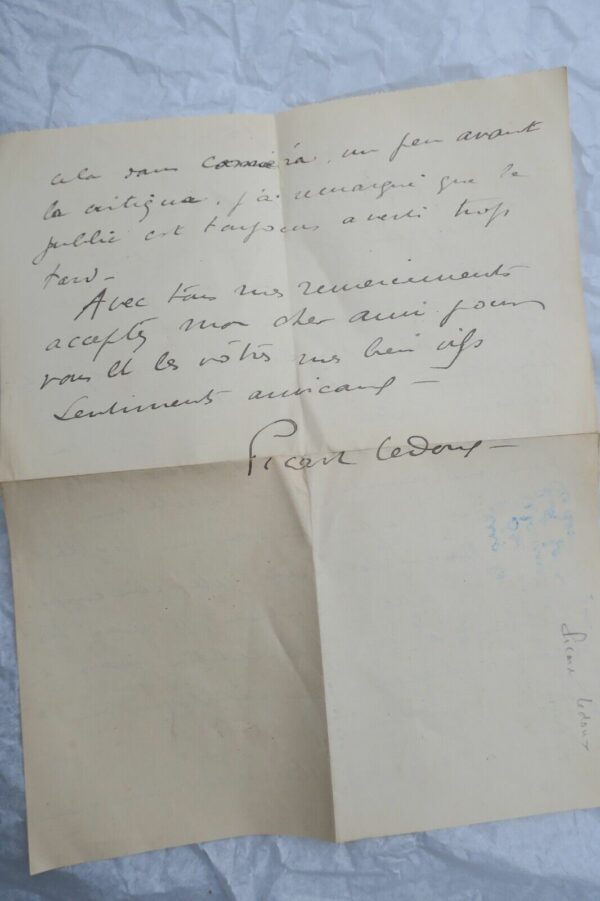 cela dans Comœdia, un peu avant
la critique. j'ai remarqué que le
public est toujours averti trop
tard –
Avec tous mes remerciements
acceptez mon cher ami pour
vous et les vôtres mes bien vifs
sentiments amicaux –
Picart Ledoux –
Picart Ledoux